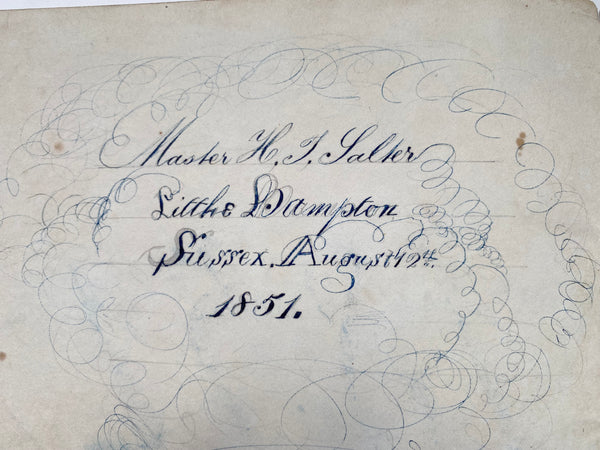 Master H. J. Salter
Little Hampton
Sussex. August 12th.
1851.